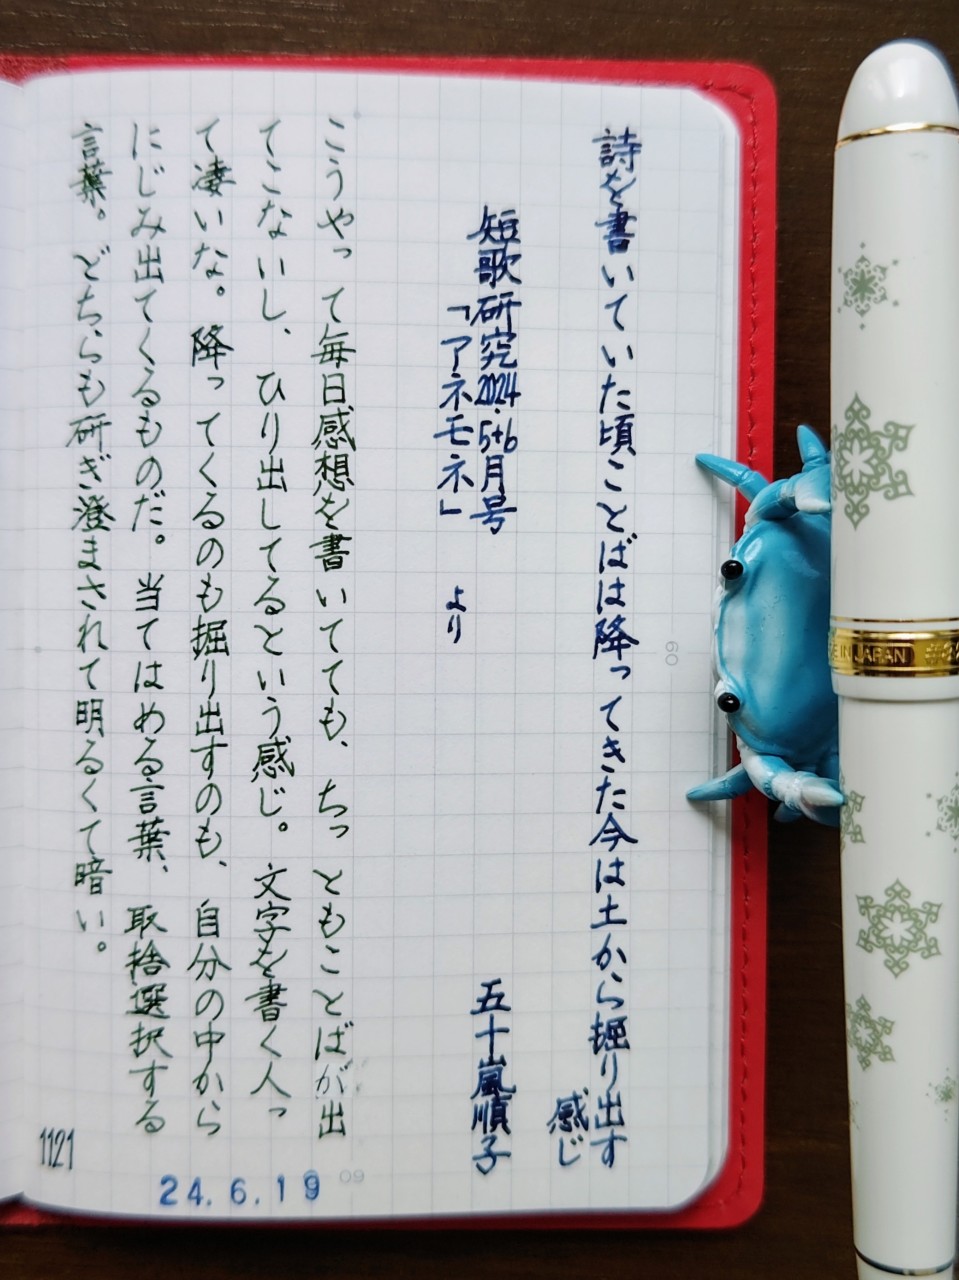 詩を書いていた頃ことばは降ってきた今は土から掘り出す
感じ
短歌研究2024.5+6月号
「アネモネ」より
五十嵐順子
こうやって毎日感想を書いてても、ちっともことばが出
てこないし、ひり出してるという感じ。文字を書く人っ
て凄いな。降ってくるのも掘り出すのも、自分の中から
にじみ出てくるものだ。当てはめる言葉、取捨選択する
言葉。どちらも研ぎ澄まされて明るくて暗い。
1121
24.6.19
60
60
IN JAPAN